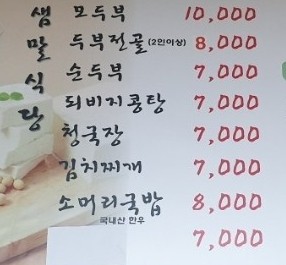 샘말식당
모두부 10,000
두부전골 (2인이상) 8,000
순두부 7,000
되비지콩탕 7,000
청국장 7,000
김치찌개 7,000
소머리국밥 8,000
국내산 한우
7,000